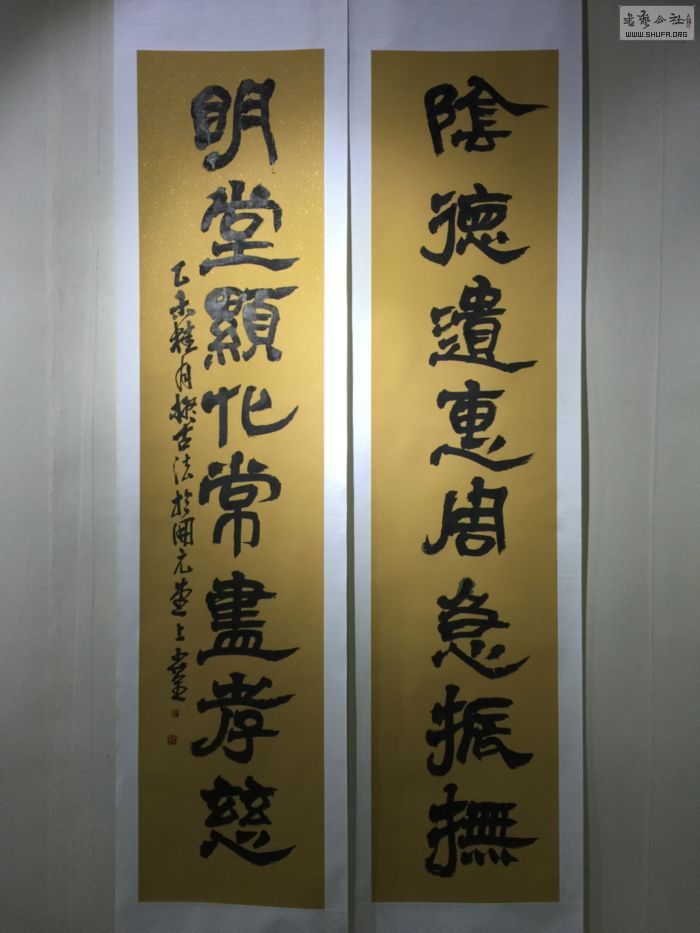 陰德遺惠周急振撫
明堂顯化常盡孝慈
乙未桂月擬古法於開元堂上
書藝公社
WWW.SHUFA.ORG